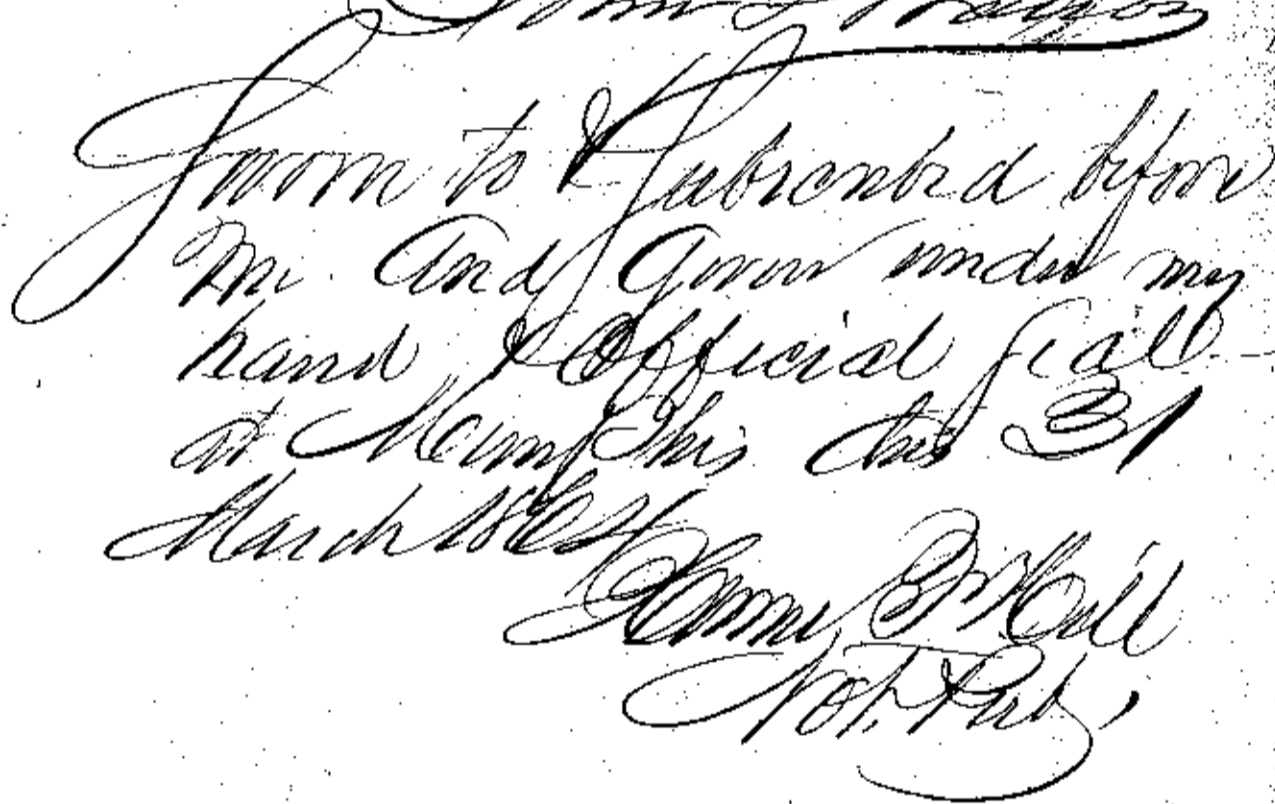 Sworn to & Subscribed before
Me And Given under my
hand & Official Seal
at Memphis this 31
March 1864
Hill
Not. Pub,